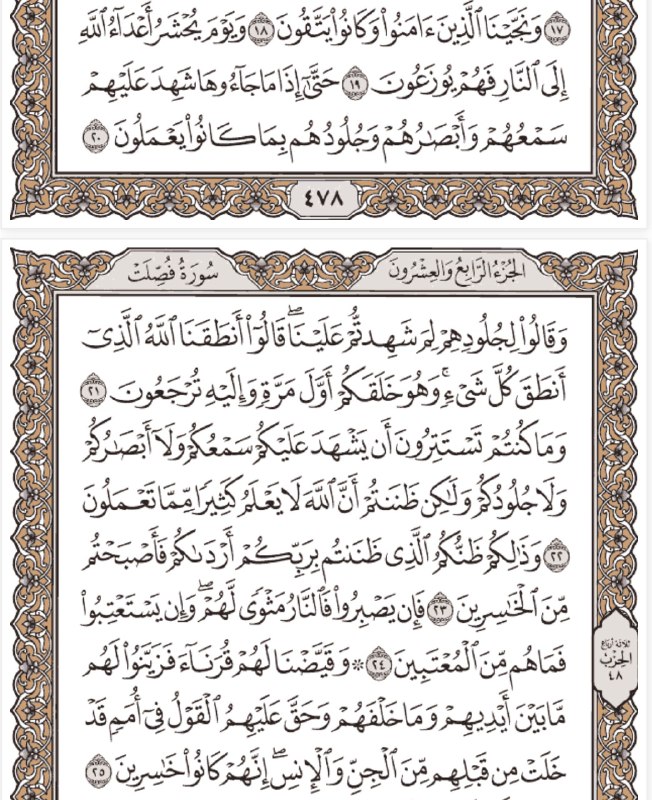 ١٧ وَنَجَّيْنَا ٱلَّذِينَ ءَامَنُوا۟ وَكَانُوا۟ يَتَّقُونَ ١٨ وَيَوْمَ يُحْشَرُ أَعْدَآءُ ٱللَّهِ
إِلَى ٱلنَّارِ فَهُمْ يُوزَعُونَ ١٩ حَتَّىٰٓ إِذَا مَا جَآءُوهَا شَهِدَ عَلَيْهِمْ
سَمْعُهُمْ وَأَبْصَـٰرُهُمْ وَجُلُودُهُم بِمَا كَانُوا۟ يَعْمَلُونَ ٢٠
٤٧٨
الجُزْءُ الرَّابِعُ وَالعِشْرُونَ سُورَةُ فُصِّلَتْ
وَقَالُوا۟ لِجُلُودِهِمْ لِمَ شَهِدتُّمْ عَلَيْنَا ۖ قَالُوٓا۟ أَنطَقَنَا ٱللَّهُ ٱلَّذِىٓ
أَنطَقَ كُلَّ شَىْءٍ ۚ وَهُوَ خَلَقَكُمْ أَوَّلَ مَرَّةٍ وَإِلَيْهِ تُرْجَعُونَ ٢١
وَمَا كُنتُمْ تَسْتَتِرُونَ أَن يَشْهَدَ عَلَيْكُمْ سَمْعُكُمْ وَلَآ أَبْصَـٰرُكُمْ
وَلَا جُلُودُكُمْ وَلَـٰكِن ظَنَنتُمْ أَنَّ ٱللَّهَ لَا يَعْلَمُ كَثِيرًا مِّمَّا تَعْمَلُونَ
٢٢ وَذَٰلِكُمْ ظَنُّكُمُ ٱلَّذِى ظَنَنتُم بِرَبِّكُمْ أَرْدَىٰكُمْ فَأَصْبَحْتُم
مِّنَ ٱلْخَـٰسِرِينَ ٢٣ فَإِن يَصْبِرُوا۟ فَٱلنَّارُ مَثْوًى لَّهُمْ ۖ وَإِن يَسْتَعْتِبُوا۟
فَمَا هُم مِّنَ ٱلْمُعْتَبِينَ ٢٤ ۞ وَقَيَّضْنَا لَهُمْ قُرَنَآءَ فَزَيَّنُوا۟ لَهُم
مَّا بَيْنَ أَيْدِيهِمْ وَمَا خَلْفَهُمْ وَحَقَّ عَلَيْهِمُ ٱلْقَوْلُ فِىٓ أُمَمٍ قَدْ
خَلَتْ مِن قَبْلِهِم مِّنَ ٱلْجِنِّ وَٱلْإِنسِ ۖ إِنَّهُمْ كَانُوا۟ خَـٰسِرِينَ ٢٥
ثلاثة أرباع
الحزب
٤٨